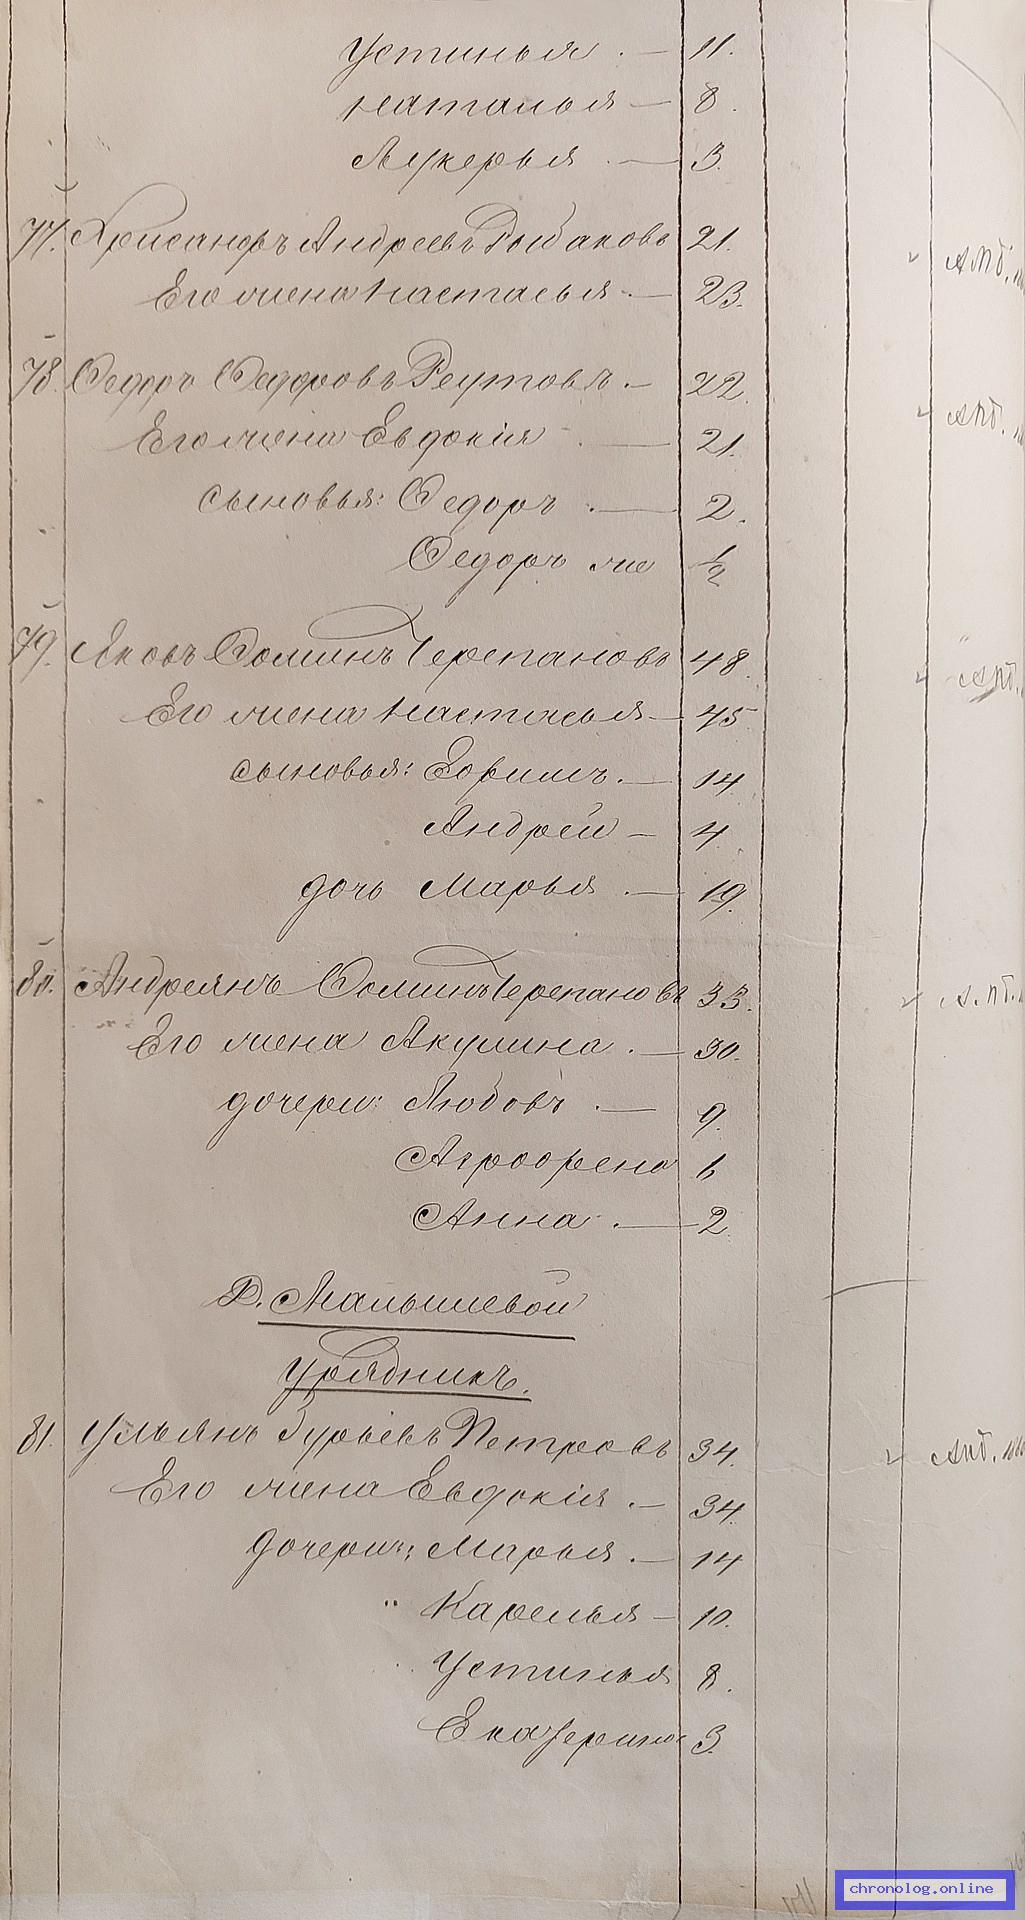 Устинья . — 11.
Наталья — 8.
Лукерья . — 3.
77. Хрисанфъ Андреевъ Рыбаковъ 21.
Его жена Настасья — 23.
78. Ѳедоръ Ѳедоровъ Реутовъ . — 22.
Его жена Евдокія — 21.
сыновья: Ѳедоръ . — 2.
Ѳедоръ же 1/2
79. Яковъ Ѳоминъ Черепановъ 48.
Его жена Настасья — 45
сыновья: Ефимъ . — 14
Андрей — 4.
дочь Марья . — 19.
80. Андреянъ Ѳоминъ Черепановъ 33.
Его жена Акулина . — 30.
дочери: Любовь . — 9.
Агрофена 6
Анна . — 2.
Д. Малышевой
Урядникъ.
81. Ульянъ Гурьевъ Петровъ 34.
Его жена Евдокія . — 34.
дочери: Марья . — 14
" Карелья — 10.
Устинья 8.
Екатерина 3.
chronolog.online